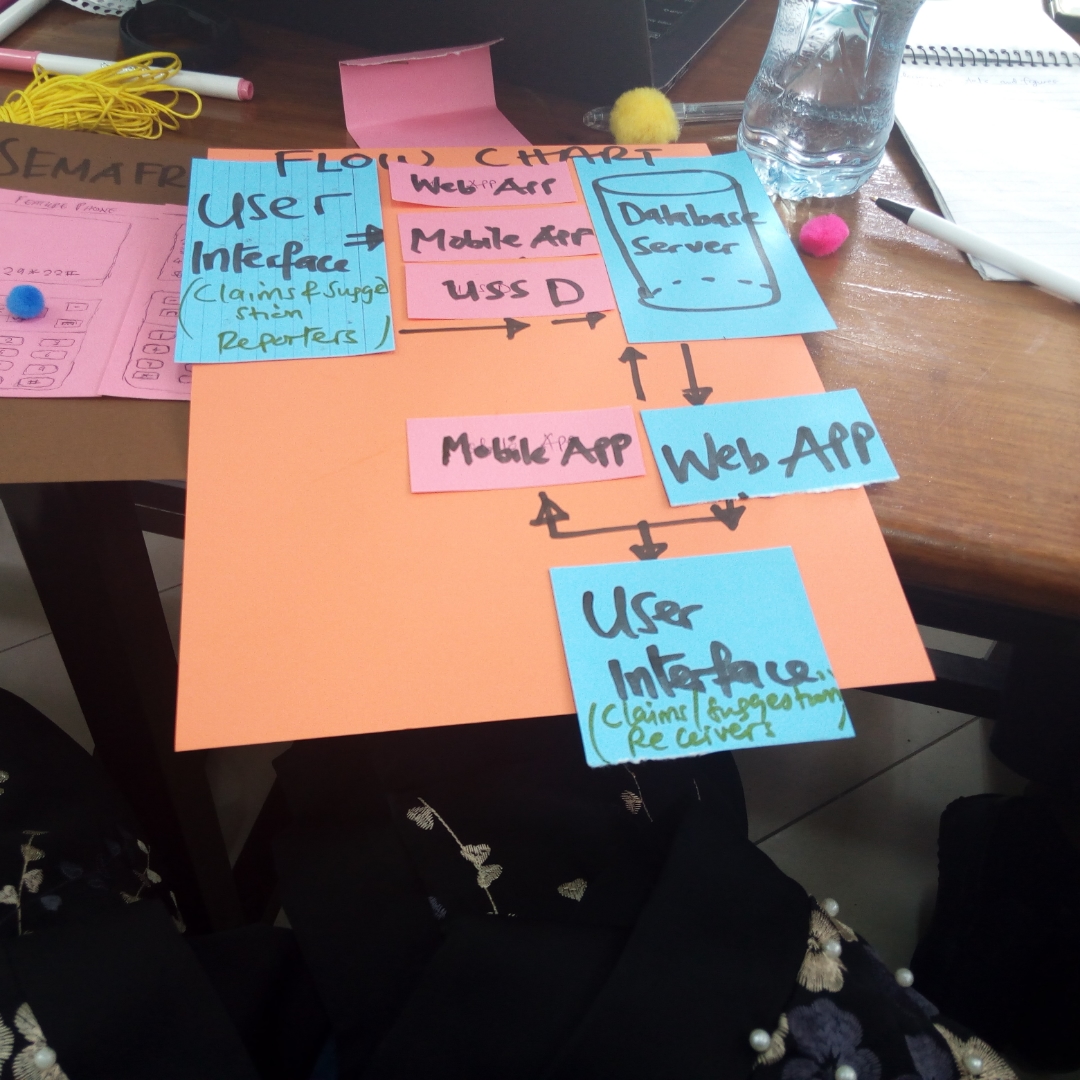 FLOW CHART
SEMAFR
FEATURE PHONE
User
Interface
(Claims & Sugge
stion
Reporters)
Web App
Mobile App
USSD
Database
Server
Mobile App
Web App
User
Interface
(Claims/Suggestion
Receivers)